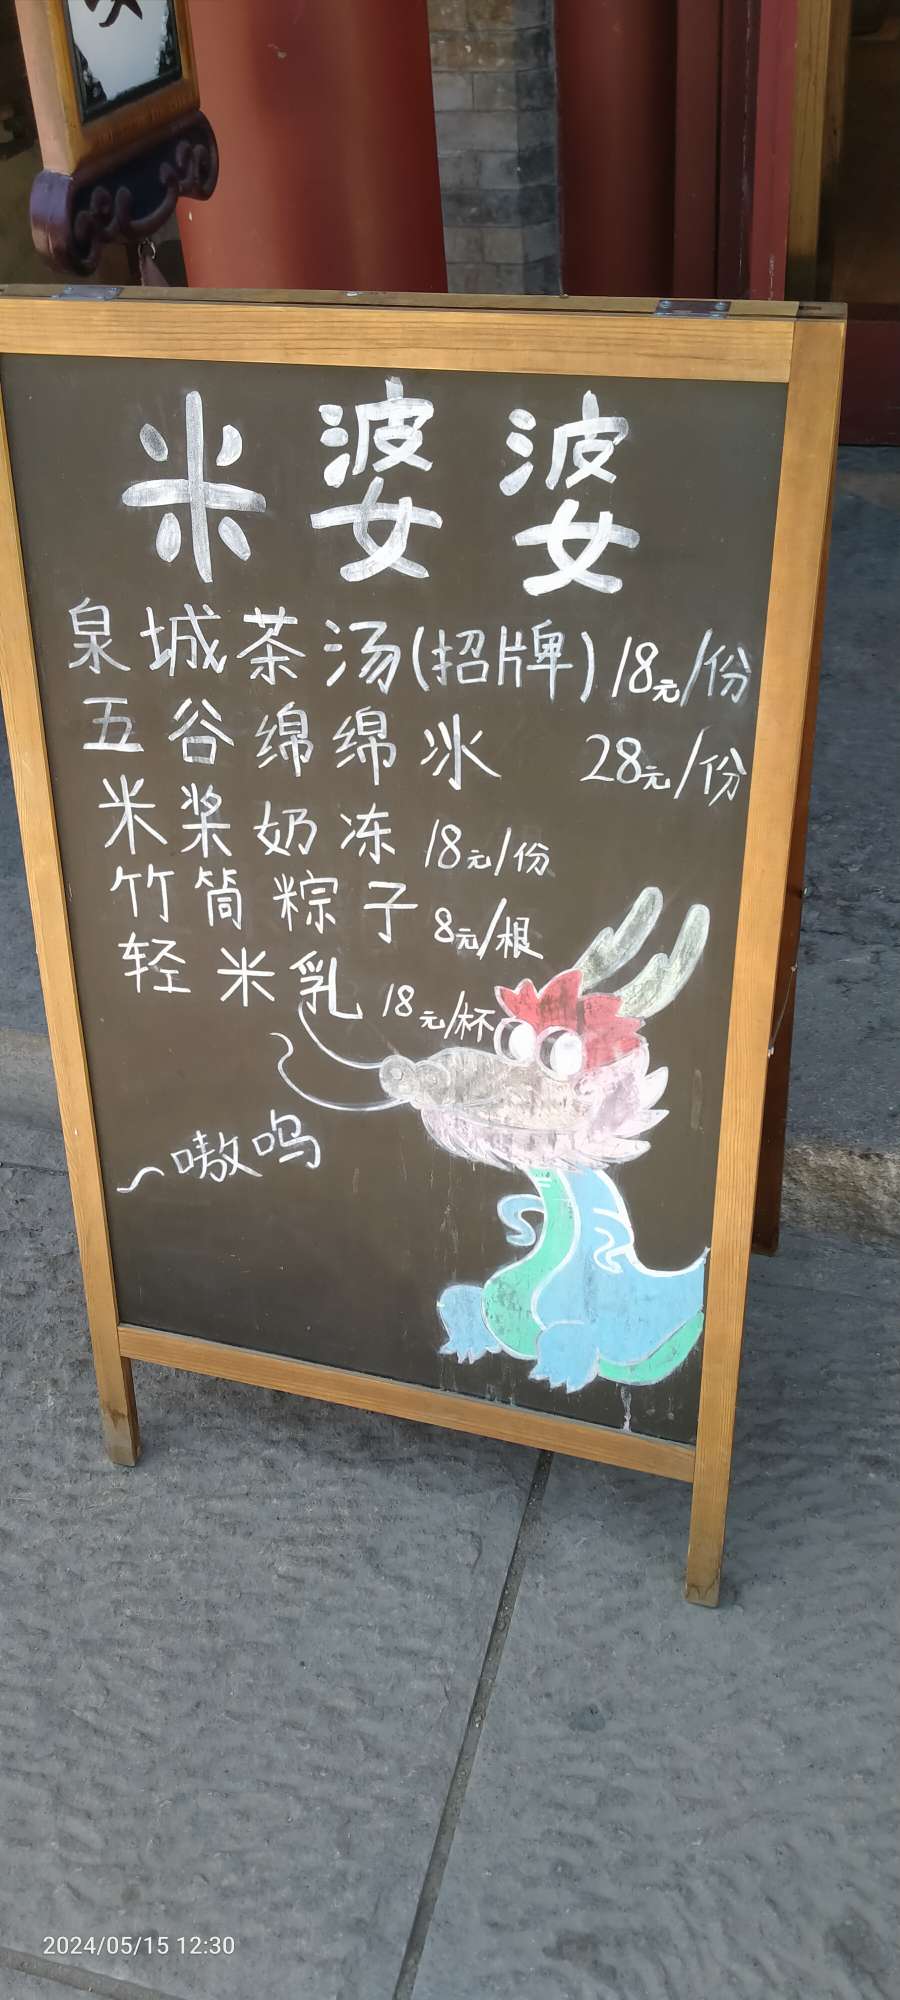 米婆婆
泉城茶汤(招牌)18元/份
五谷绵绵冰 28元/份
米浆奶冻 18元/份
竹筒粽子 8元/根
轻米乳 18元/杯
~嗷呜
2024/05/15 12:30